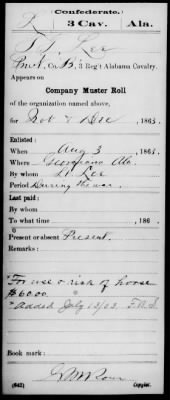 Confederate.
3 Cav. Ala.
Lee
Co. B, 3 Reg't Alabama Cavalry.
Appears on
Company Muster Roll
of the organization named above,
for Nov & Dec, 1863.
Enlisted:
When Aug 3, 186
Where Ala.
By whom Lee
Period During the war
Last paid:
By whom
To what time, 186 .
Present or absent Present.
Remarks:
*For use & risk of horse
$6000
*Added July 13/03. F.A.S.
Book mark:
(642) Copyist.